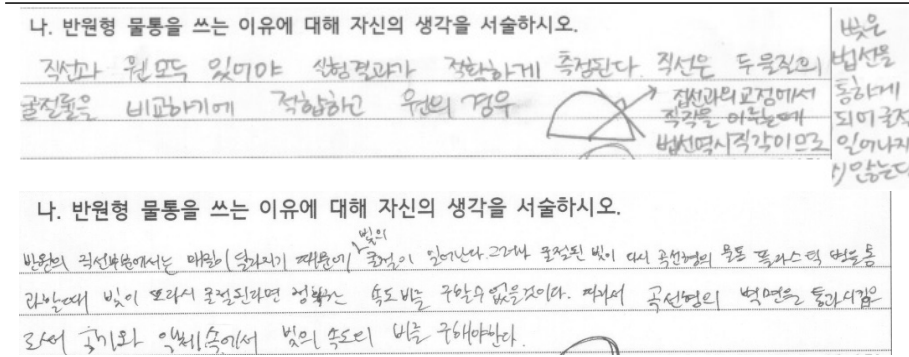 나. 반원형 물통을 쓰는 이유에 대해 자신의 생각을 서술하시오.
직선과 원 모두 있어야 실험결과가 정확하게 측정된다. 직선은 두 물질의
굴절률을 비교하기에 적합하고 원의 경우
접선과의 교점에서
직각을 이루는데
법선역시 직각이므로
빛은
법선을
통하게
되어 굴절
일어나지
않는다
나. 반원형 물통을 쓰는 이유에 대해 자신의 생각을 서술하시오.
반원의 직선부분에서는 매질이 달라지기 때문에 빛의 굴절이 일어난다. 그러나 굴절된 빛이 다시 곡선형의 물통 플라스틱 벽을 통
과할때 빛이 또다시 굴절된다면 정확한 속도 비를 구할수 없을것이다. 따라서 곡선형의 벽면을 통과시킴으
로써 공기와 액체속에서 빛의 속도의 비를 구해야한다.